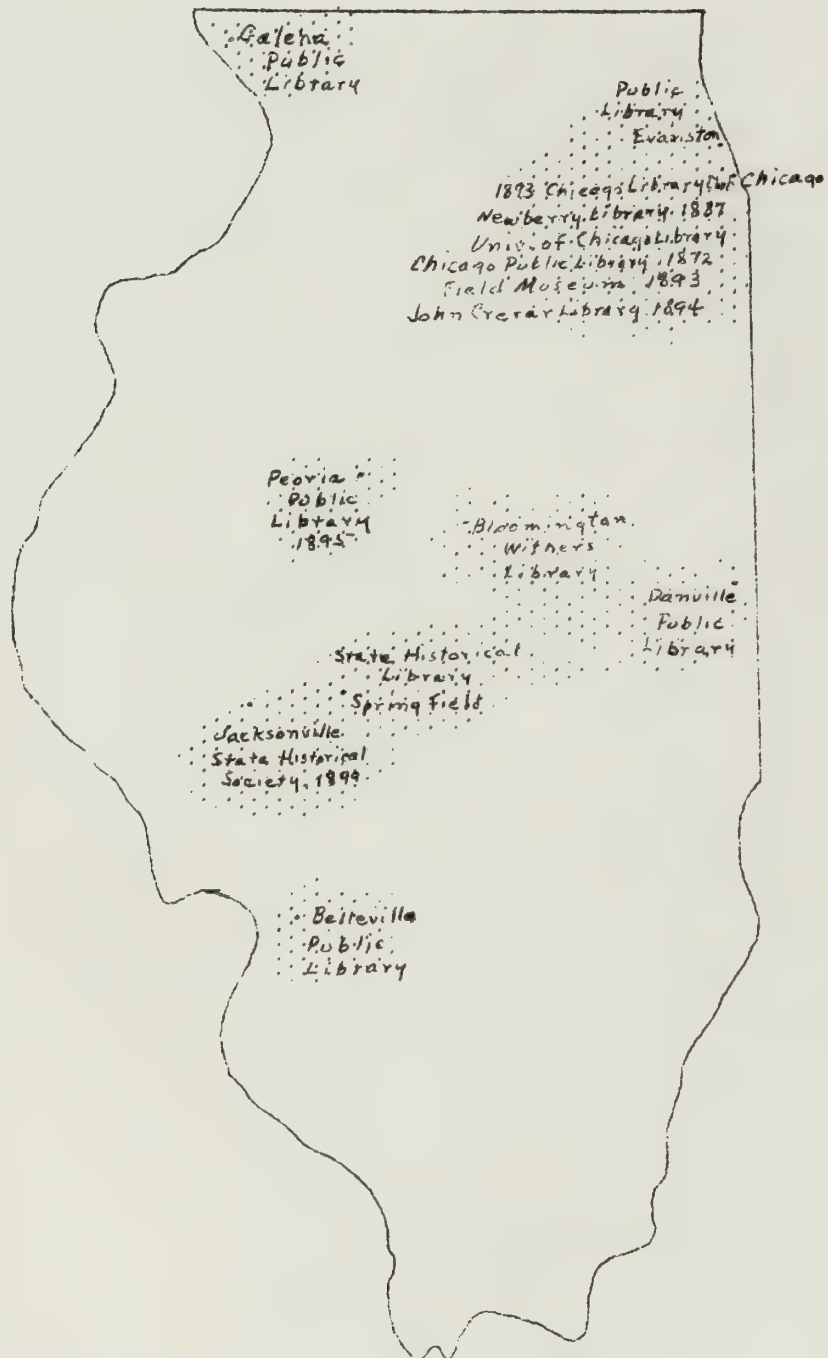 Galena
Public
Library
Public
Library
Evanston
1893 Chicago Library Chicago
Newberry Library 1887
Univ. of Chicago Library
Chicago Public Library, 1872
Field Museum, 1893
John Crerar Library 1894
Peoria
Public
Library
1895
Bloomington
Withers
Library
Danville
Public
Library
State Historical
Library
Spring Field
Jacksonville
State Historical
Society, 1899
Belleville
Public
Library